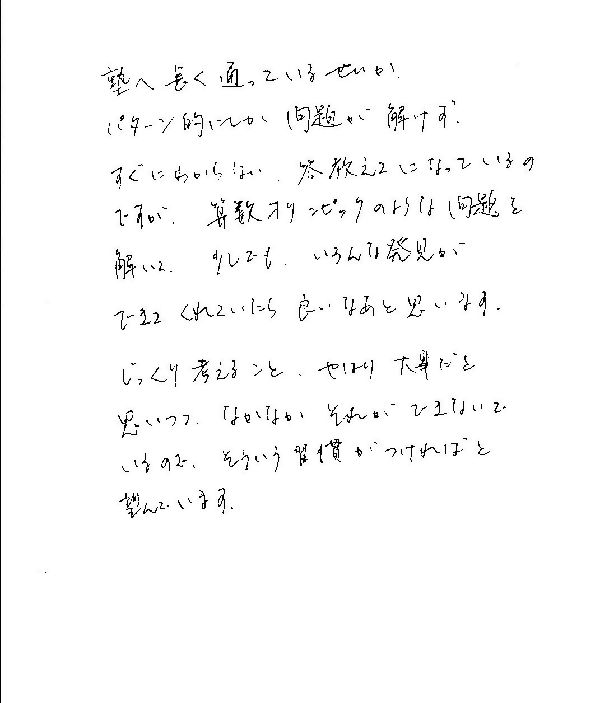 塾へ長く通っているせいか、
パターン的にしか問題が解けず、
すぐにわからない、答教えてになっているの
ですが、算数オリンピックのような問題を
解いて、少しでも、いろんな発見が
できてくれていたら良いなあと思います。
じっくり考えること、やはり大事だと
思いつつ、なかなかそれができないで
いるので、そういう習慣がつければと
望んでいます。